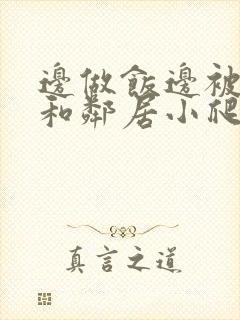 邊做飯邊被
和鄰居小爬
真言之道